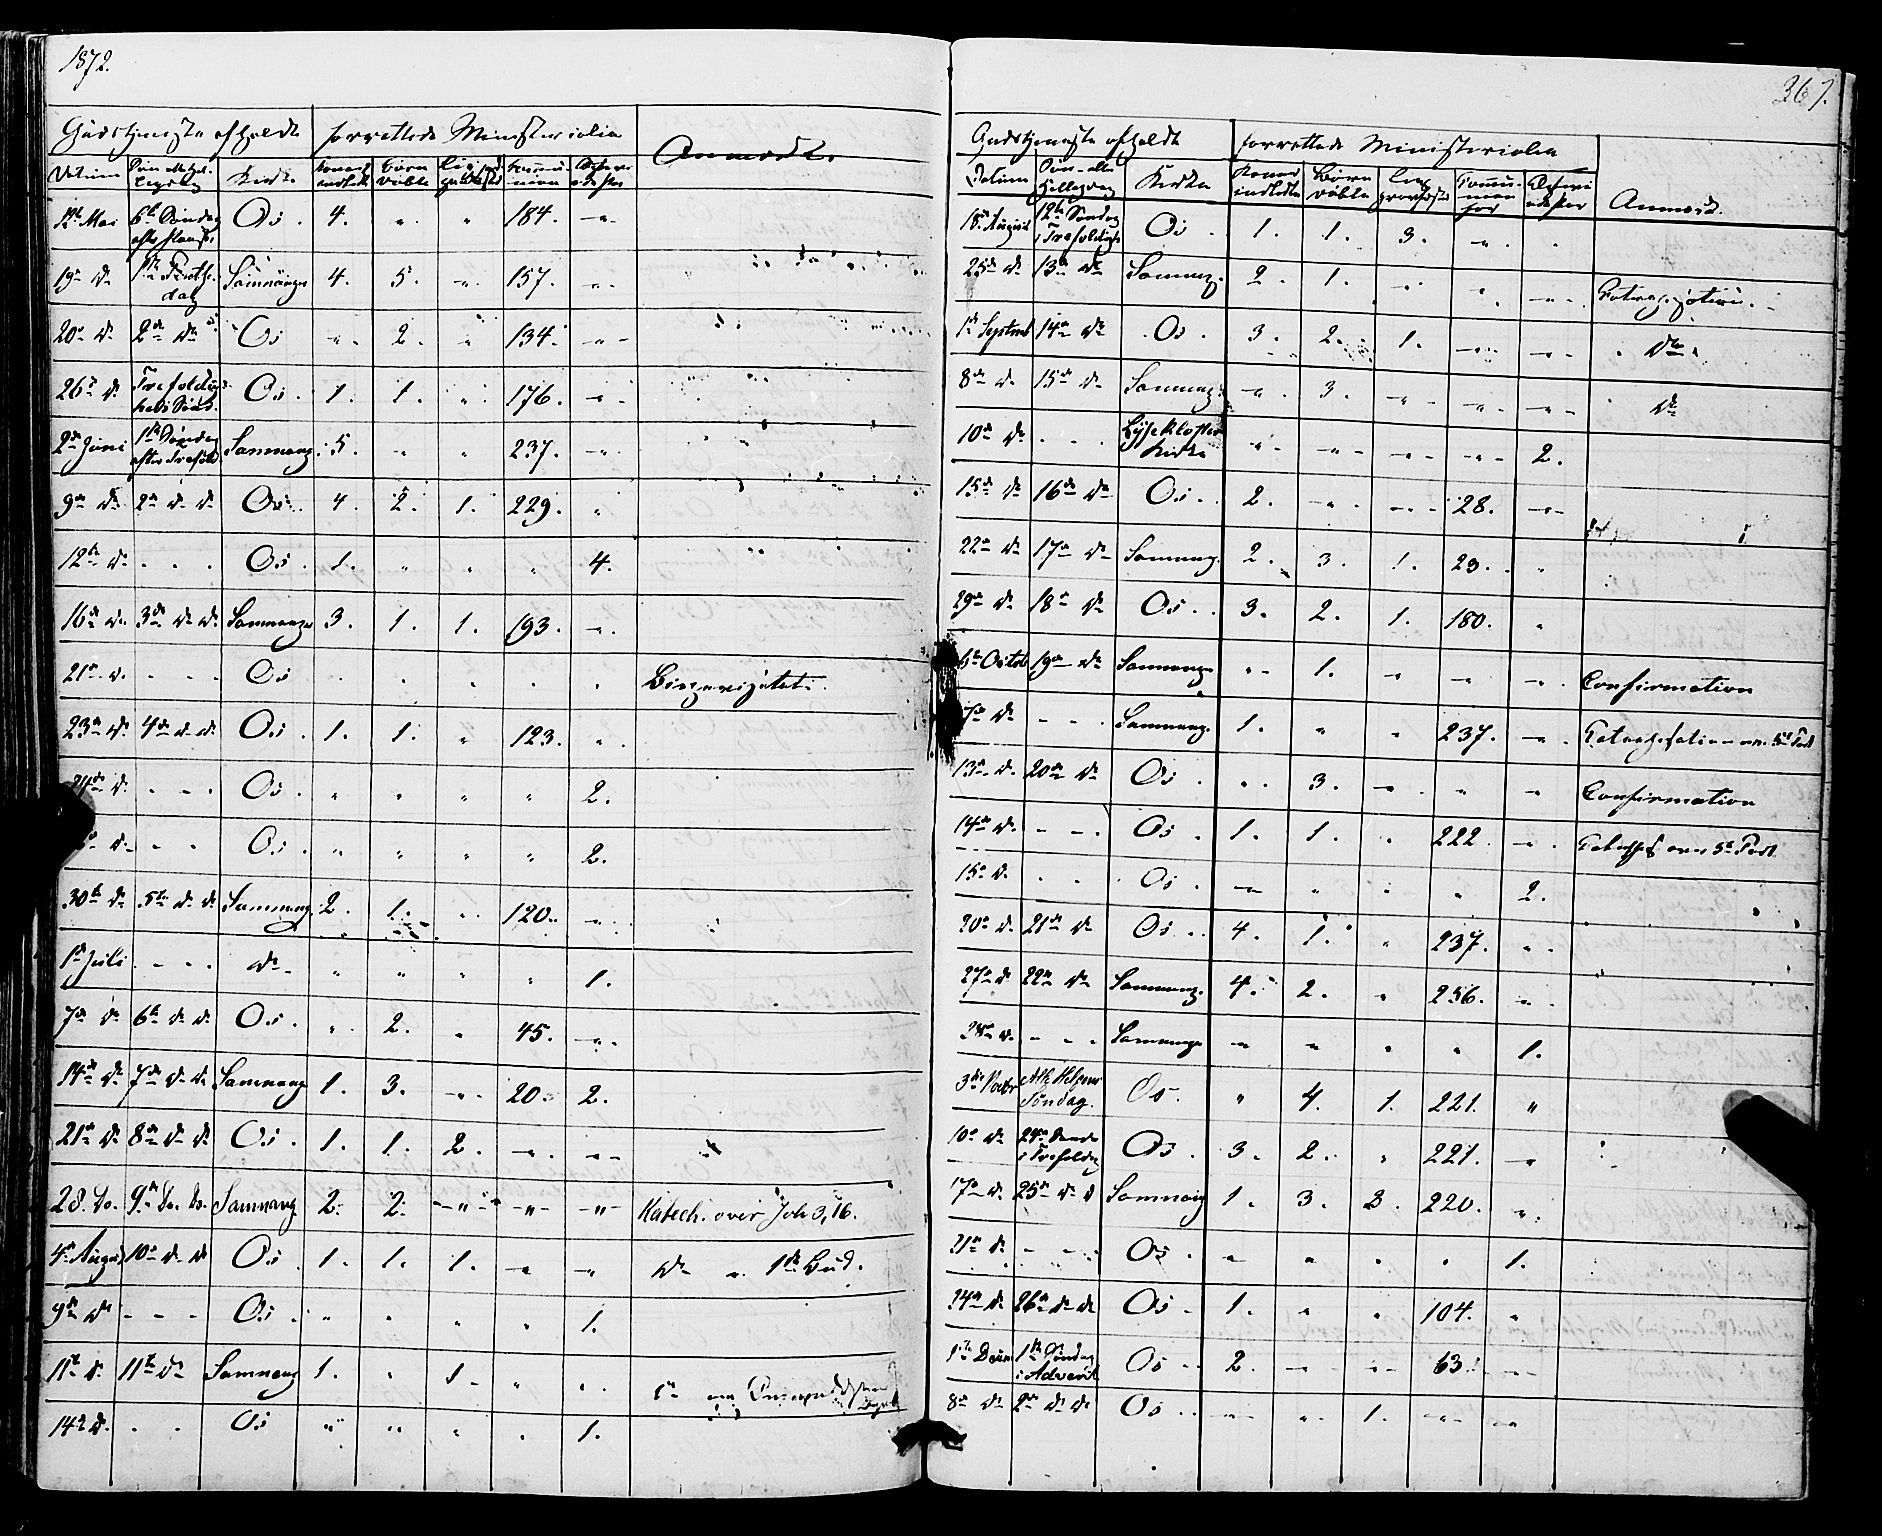 1872.
Gudstjeneste afholdt forrettede Ministerialia Anmærk.
Datum Søn eller Helligdag Kirke Koner indledte Børn døbte Communion
12te Mai 6te Søndag efter Paaske Os. 4. " " 184. "
19de do 1ste Pintsedag Samnanger 4. 5. " 157. "
20de do 2den do Os " 2. " 134. "
26de do Trefoldigheds Sønd. Os. 1. 1. " 176. "
2den Juni 1ste Søndag efter Trefold. Samnang. 5. " " 237. "
9de do 2den do do Os. 4. 2. 1. 229. "
12te do - - - Os. 1. " " " 4.
16de do 3de do do Samnanger 3. 1. 1. 193. "
21de do - - - Os " " " " "
23de do 4de do do Os. 1. 1. " 123. "
24de do - - - Os. " " " " 2.
do - - Os. " " " " 2.
30te do 5te do do Samnang. 2. 1. " 120. "
1ste Juli - - - do " " " " 1.
7de do 6te do do Os. " 2. " 45. "
14de do 7de do do Samnang 1. 3. " 20. 2.
21de do 8de do do Os. 1. 1. 2. " "
28. do. 9de do. do. Samnang 2. 2. " " " Katech. over Joh 3,16.
4de August 10de do do Os. 1. 1. 1. " " do " 1ste Bud.
9de do - - - Os. " " " " 1.
11te do 11te do Samnang 1. " 1. " "
14de do - - Os " " " " 1.
367.
Gudstjeneste afholdt forrettede Ministerialia
Datum Søn- eller Helligdag Kirke Koner indledte Børn døbte Lig Communionsfor Anmærk.
18de August 12te Søndag e Trefoldigh Os. 1. 1. 3. " "
25de do 13de do Samnang. 2. 1. " " " Catechisation.
1ste Septemb 14de do Os. 3. 2. 1. " " do
8de do 15de do Samnang. " 3. " " " do
10de do - - - Lysekloster Kirke " " " " 2.
15de do 16de do Os. 2. " " 28. "
22de do 17de do Samnang. 2. 3. 1. 23. "
29de do 18de do Os. 3. 2. 1. 180. "
6te Octob 19de do Samnang. " 1. " " " Confirmation
7de do - - - Samnang. 1. " " 237. " Catechisation over 5te Part
13de do 20de do Os. " 3. " " " Confirmation
14de do - - - Os. 1. 1. " 222. " over 5te Part
15de do - - Os. " " " " 2.
20de do 21de do Os. 4. 1. " 237. "
27de do 22de do Samnang. 4. 2. " 256. "
28de do - - - Samnang. " " " " 1.
3die Novbr Alle Helgens Søndag. Os. " 4. 1. 221. "
10de do 24de Sønd. e Trefoldig Os. 3. 2. " 221. "
17de do 25de do do Samnang 1. 3. 2. 220. "
21de do - - - Os. " " " " 1.
24de do 26de do do Os. 1. " " 104. "
1ste Decem 1ste Søndag i Advent Os. 2. " " 63. "
8de do 2den do do Os " " 1. " "